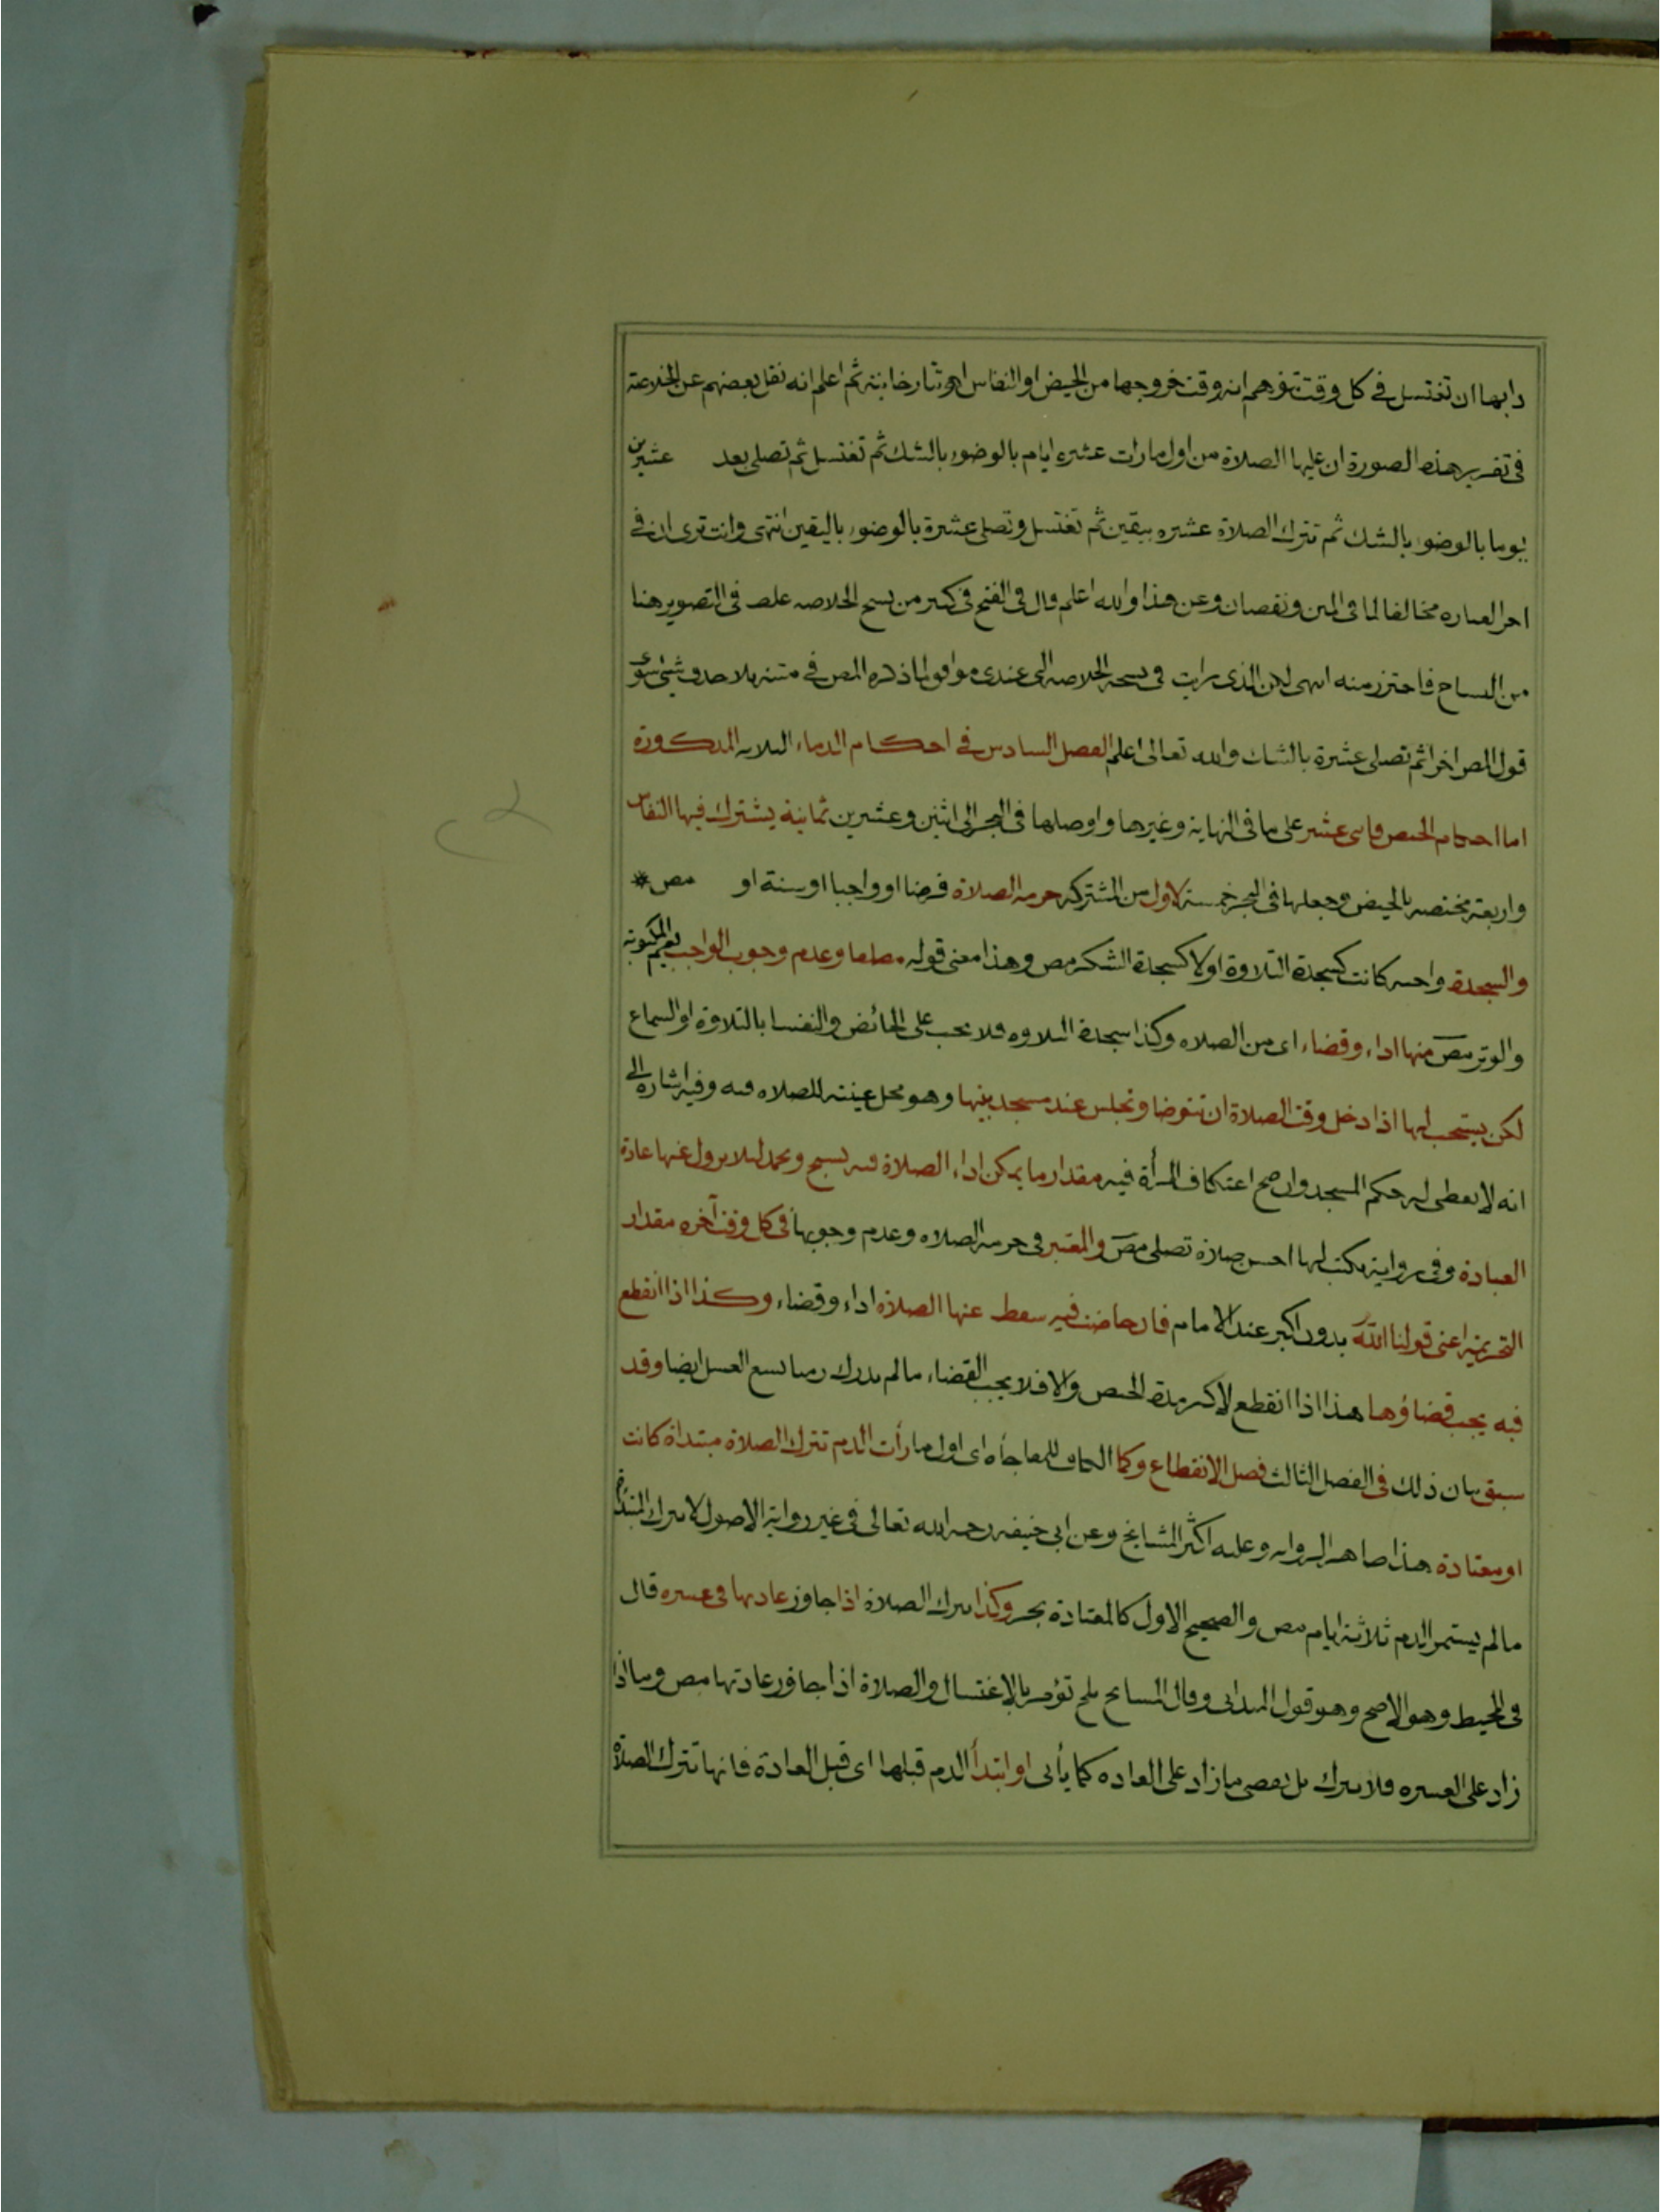 دابها ان تغتسل في كل وقت تتوهم انه وقت خروجها من الحيض او النفاس اهو تتارخانية ثم اعلم انه نقل بعضهم عن الخلاصة
في تقرير هذه الصورة ان عليها الصلاة من اول ما رات عشره ايام بالوضوء بالشك ثم تغتسل ثم تصلى بعد عشرين
يوما بالوضوء بالشك ثم تترك الصلاة عشره بيقين ثم تغتسل وتصلى عشرة بالوضوء باليقين انتهى وانت ترى ان في
اخر العباره مخالفا لما فى المتن ونقصان وعن هذا والله اعلم قال فى الفتح فى كثير من نسخ الخلاصه غلط فى التصوير هنا
من النساخ فاحترز منه انتهى لكن الذى رايت فى نسخة الخلاصه التى عندى موافق لما ذكره المص فى متنه بلا حذف شئ سوى
قول المص اخرا ثم تصلى عشرة بالشك والله تعالى اعلم الفصل السادس في احكام الدماء الثلاثه المذكورة
اما احكام الحيض فاثنى عشر على ما فى النهاية وغيرها واوصلها فى البحر الى اثنين وعشرين ثمانية يشترك فيها النفاس
واربعة مختصه بالحيض وجعلها فى البحر خمسة الاول من المشتركه حرمه الصلاة فرضا او واجبا او سنة او مص *
والسجدة واجبه كانت كسجدة التلاوة اولا كسجدة الشكر مص وهذا معنى قوله مطلقا وعدم وجوب الواجب يعم المكتوبة
والوتر مص منها اداء وقضاء اى من الصلاه وكذا سجدة التلاوه فلا يجب على الحائض والنفسا بالتلاوة او السماع
لكن يستحب لها اذا دخل وقت الصلاة ان تتوضا وتجلس عند مسجد بيتها وهو محل عينته للصلاه فيه وفيه اشارة الى
انه لا يعطى له حكم المسجد وان صح اعتكاف المرأة فيه مقدار ما يمكن اداء الصلاة فيه تسبح وتحمد لئلا يزول عنها عادة
العبادة وفى رواية يكتب لها احسن صلاة تصلى مص والمعتبر فى حرمة الصلاه وعدم وجوبها فى كل وقت آخره مقدار
التحريمه اعنى قولنا الله بدون اكبر عند الامام فان حاضت فيه سقط عنها الصلاة اداء وقضاء وكذا اذا انقطع
فيه يجب قضاؤها هذا اذا انقطع لاكثر مدة الحيض والا فلا يجب القضاء ما لم تدرك زمنا يسع الغسل ايضا وقد
سبق بيان ذلك فى الفصل الثالث فصل الانقطاع وكما الكاف للمفاجأه اى اول ما رأت الدم تترك الصلاة مبتداة كانت
او معتادة هذا ظاهر الروايه وعليه اكثر المشايخ وعن ابى حنيفه رحمه الله تعالى فى غير رواية الاصول لا تترك المبتداة
ما لم يستمر الدم ثلاثة ايام مص والصحيح الاول كالمعتادة بحر وكذا تترك الصلاة اذا جاوز عادتها فى عشره قال
فى المحيط وهو الاصح وهو قول الميدانى وقال مشايخ بلخ تؤمر بالاغتسال والصلاة اذا جاوز عادتها مص وما اذا
زاد على العشره فلا تترك بل تقضى ما زاد على العاده كما يأتى او ابتدأ الدم قبلها اى قبل العادة فانها تترك الصلاة